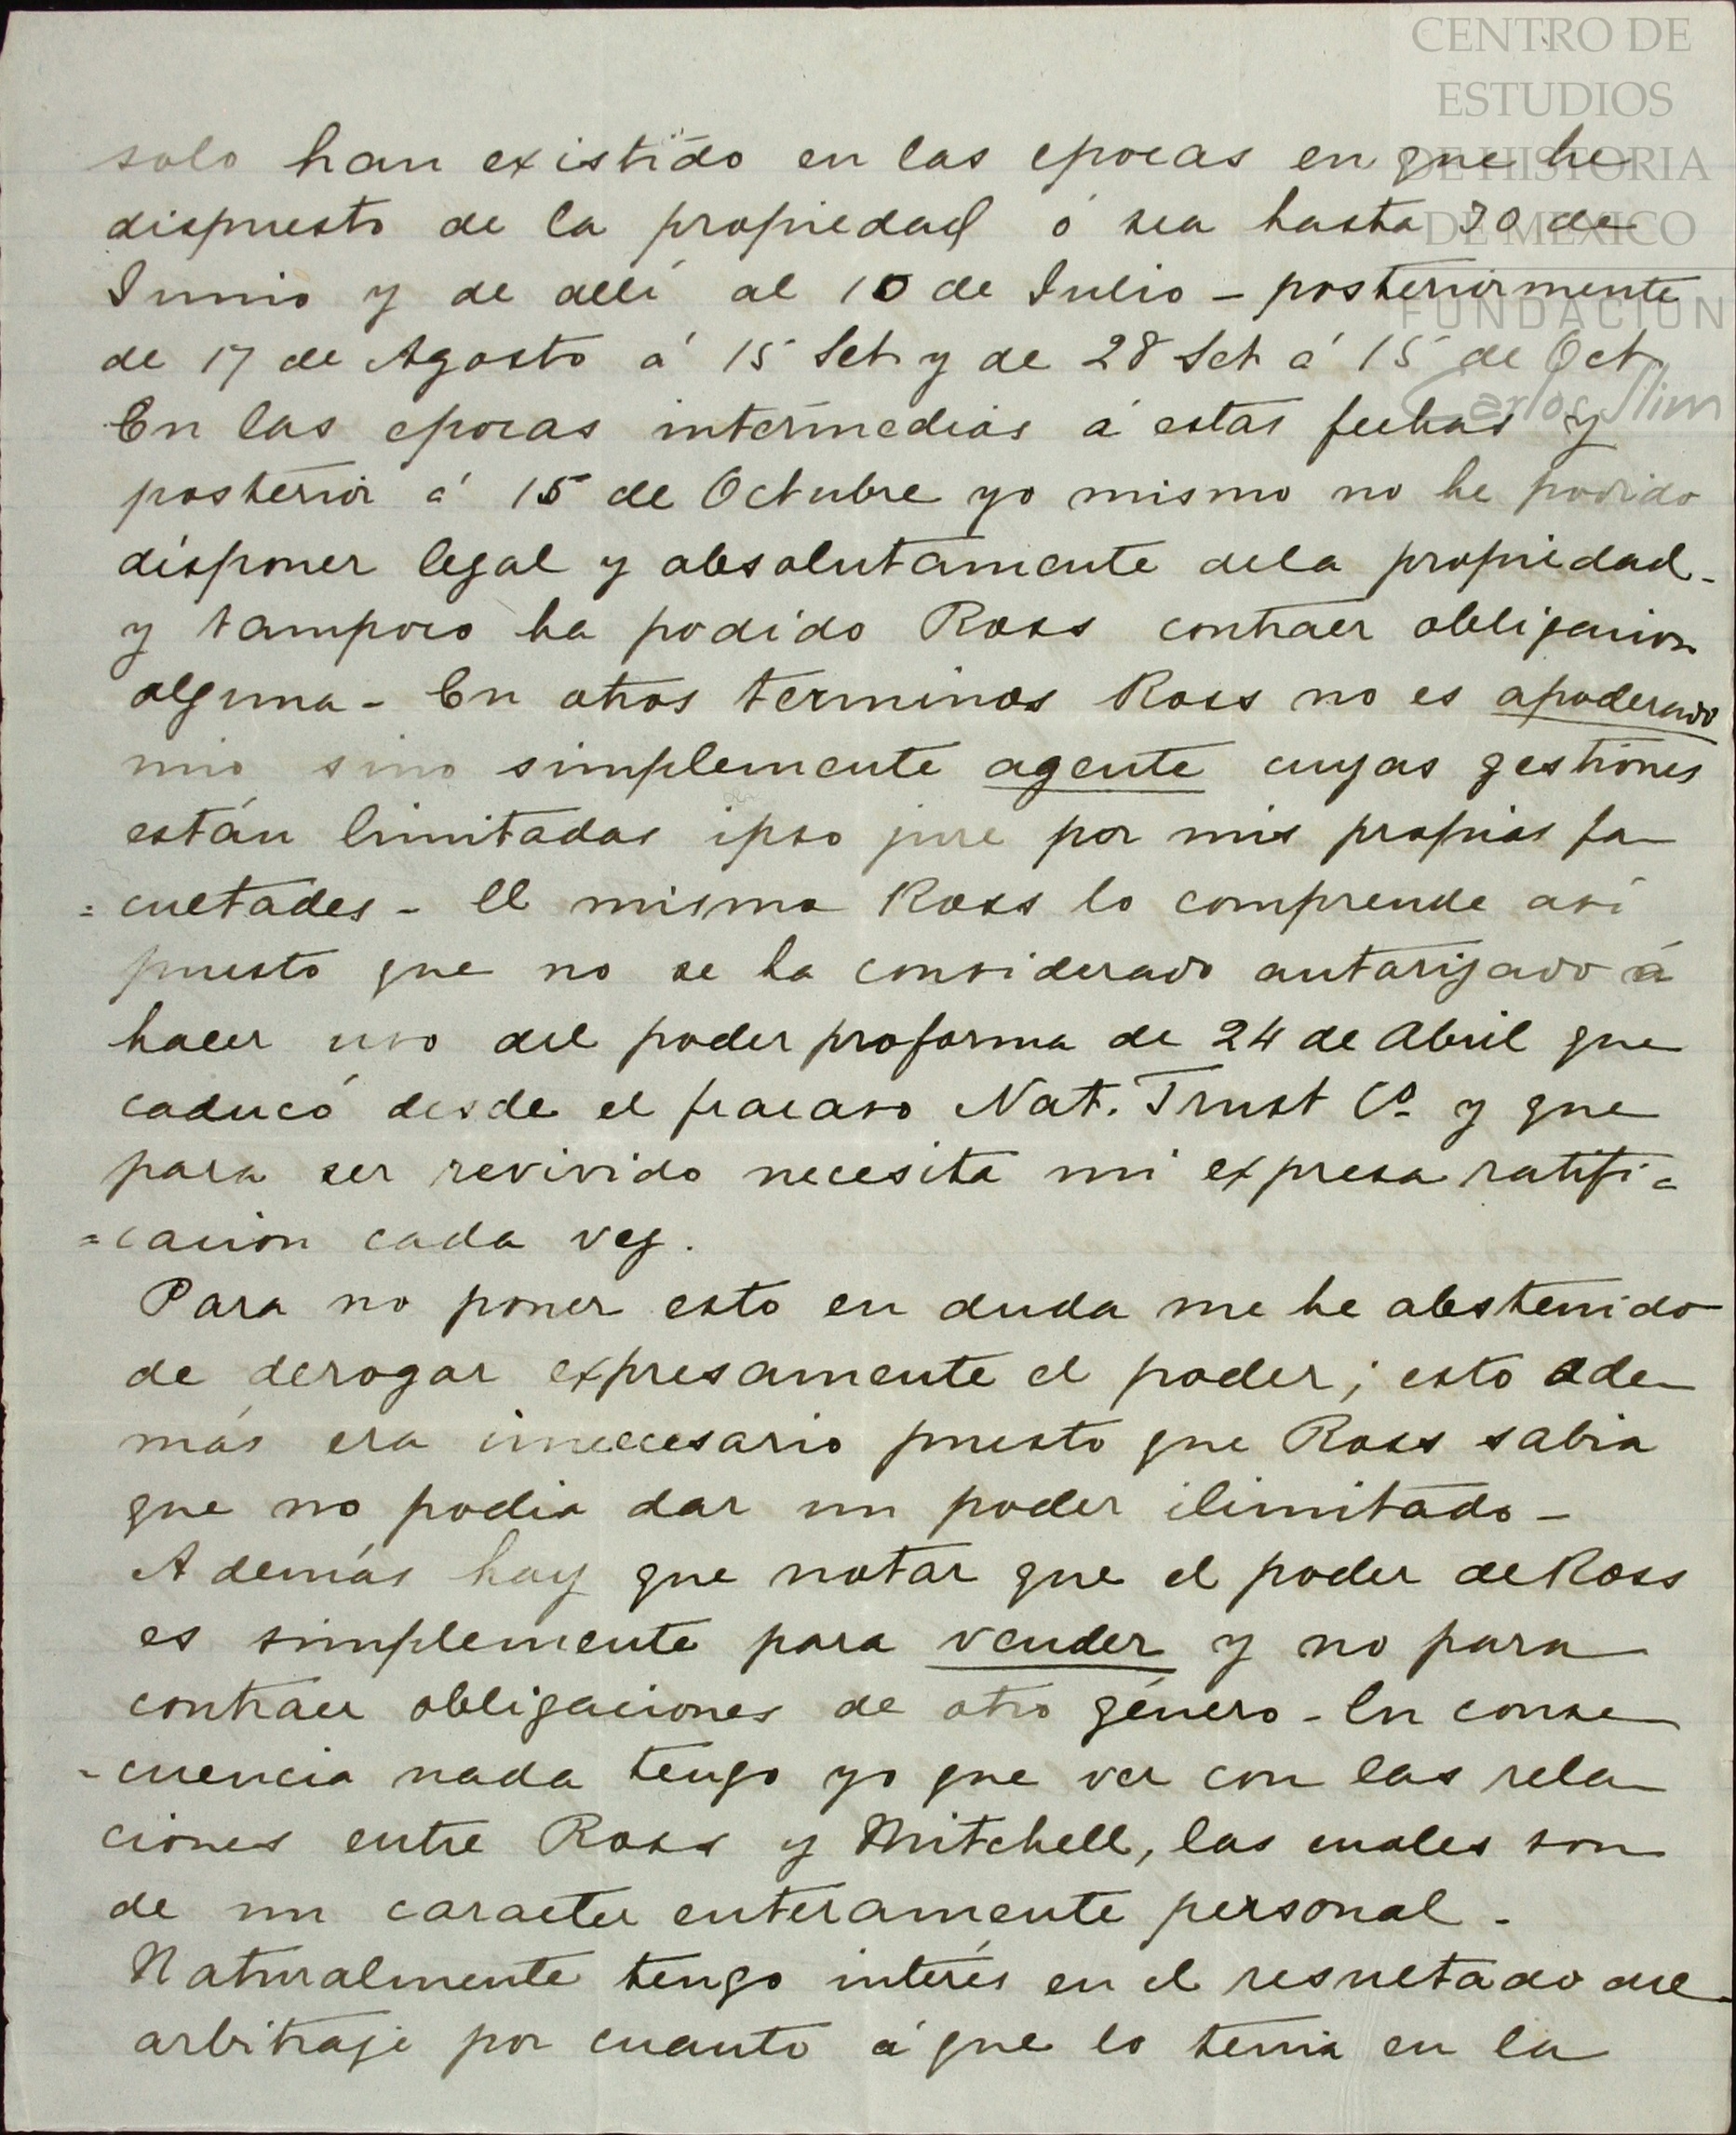 CENTRO DE
ESTUDIOS
DE HISTORIA
DE MEXICO
FUNDACION
Carlos Slim
solo han existido en las epocas en que he
dispuesto de la propiedad ó sea hasta 30 de
Junio y de allí al 10 de Julio - posteriormente
de 17 de Agosto á 15 Set y de 28 Set á 15 de Oct.
En las epocas intermedias á estas fechas y
posterior á 15 de Octubre yo mismo no he podido
disponer legal y absolutamente dela propiedad -
y tampoco ha podido Ross contraer obligacion
alguna - En otros terminos Ross no es apoderado
mio sino simplemente agente cuyas gestiones
están limitadas ipso jure por mis propias fa
= cultades - El mismo Ross lo comprende así
puesto que no se ha considerado autorizado á
hacer uso del poder proforma de 24 de Abril que
caducó desde el fracaso Nat. Trust Co. y que
para ser revivido necesita mi expresa ratifi =
= cacion cada vez.
Para no poner esto en duda me he abstenido
de derogar expresamente el poder; esto ade
más era innecesario puesto que Ross sabia
que no podia dar un poder ilimitado -
Además hay que notar que el poder de Ross
es simplemente para vender y no para
contraer obligaciones de otro género - En conse
- cuencia nada tengo yo que ver con las rela
ciones entre Ross y Mitchell, las cuales son
de un caracter enteramente personal -
Naturalmente tengo interés en el resultado del
arbitraje por cuanto á que lo tenia en la